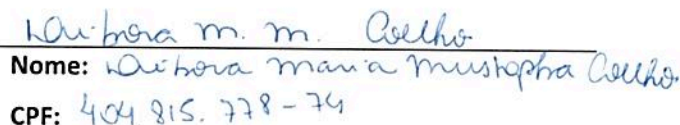 Débora M. M. Coelho
Nome: Débora Maria Mustapha Coelho
CPF: 404 815. 778-74